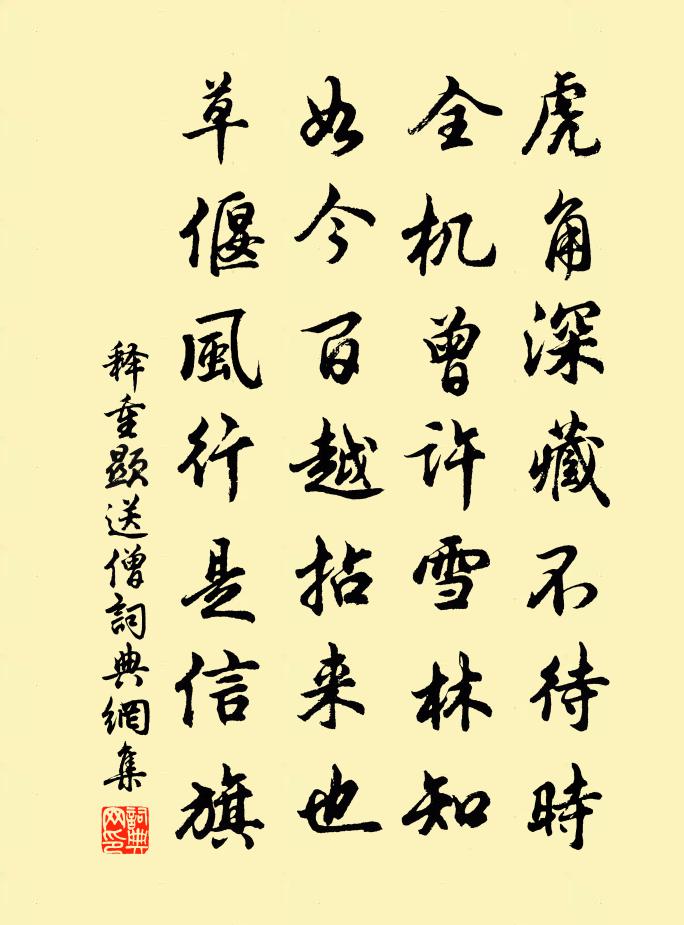 虎角深藏不待時
全机曾许雪林知
如今百越拈来也
草偃風行是信旗
释重顯送僧詞典網集
詞典
网印